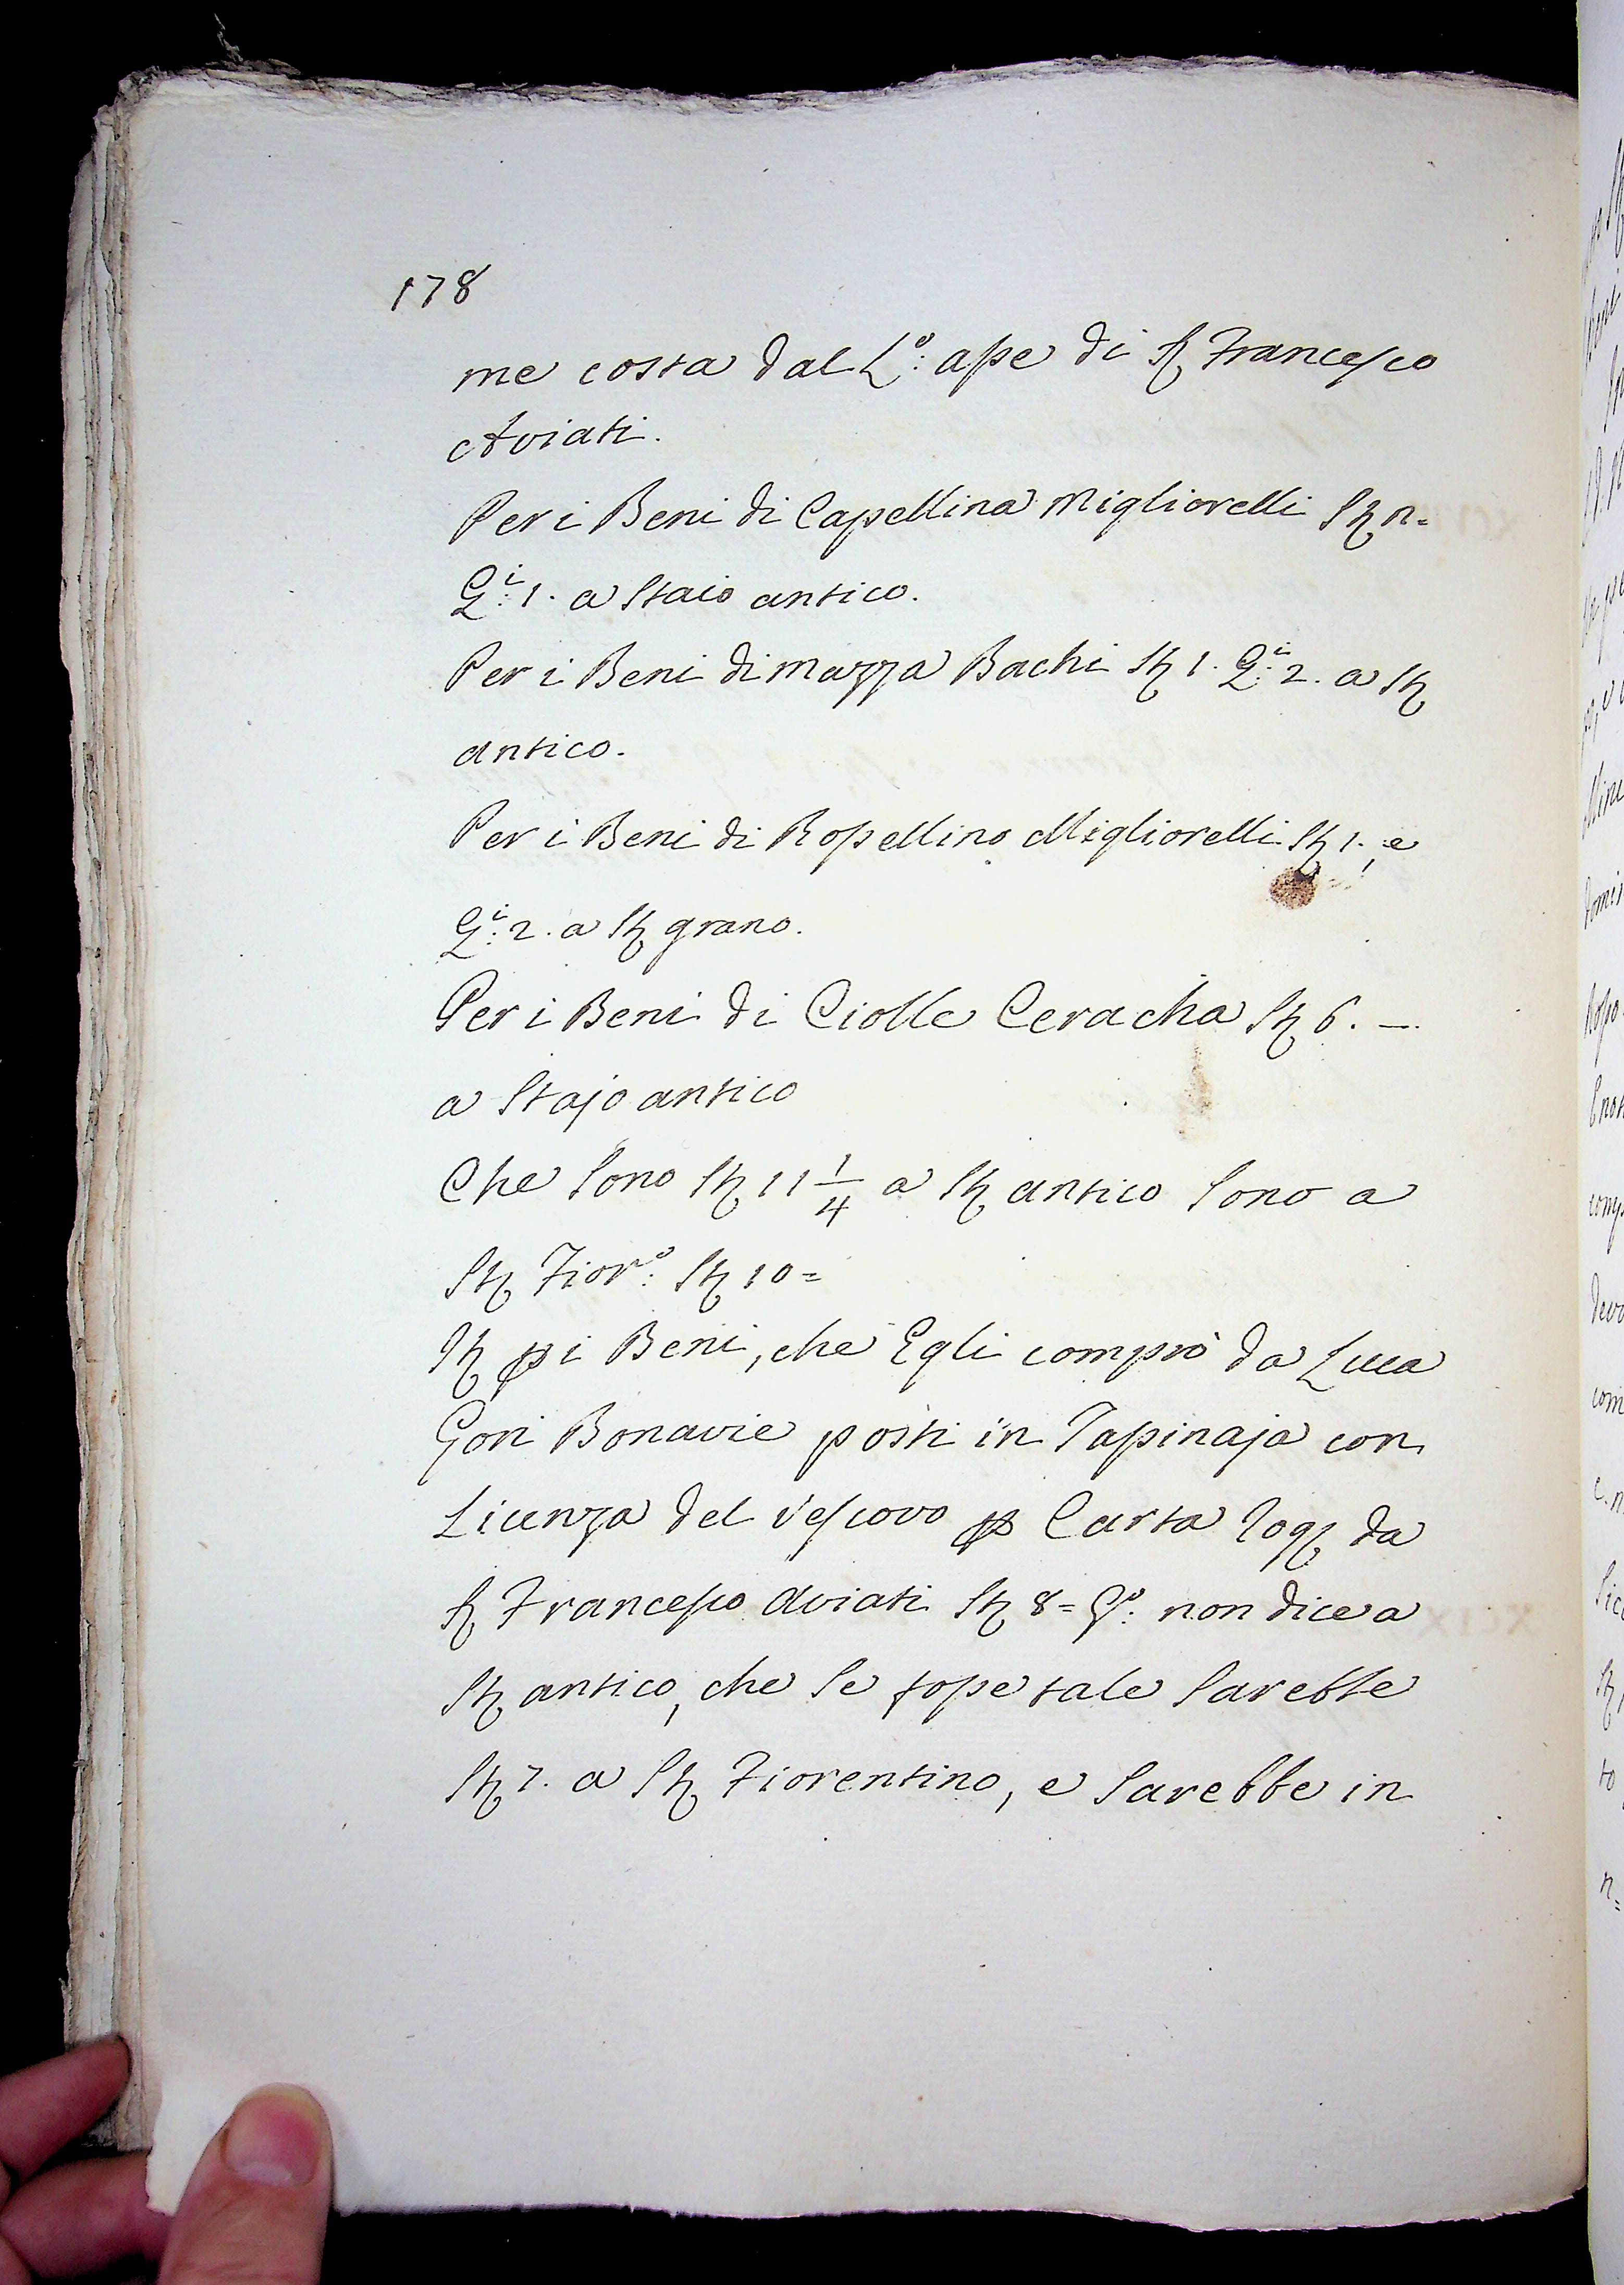 178
me costa dal L.º asse di Sr Francesco
Aviati.
Per i Beni di Capellina Migliorelli St n=
Q.i 1. a Staio antico.
Per i Beni di Mazza Bachi St 1. Q.i 2. a St
antico.
Per i Beni di Rossellino Migliorelli St 1., e
Q.i 2. a St grano.
Per i Beni di Ciolle Ceracha St 6. —.
a Stajo antico
Che Sono St 11 1/4 a St antico Sono a
St Fior.º St 10=
It p i Beni, che Egli comprò da Luca
Gori Bonavie posti in Tassinaja con
Licenza del Vescovo p Carta rog da
Sr Francesco Aviati St 8= Gº: non dice a
St antico, che Se fosse tale Sarebbe
St 7. a St Fiorentino, e Sarebbe in